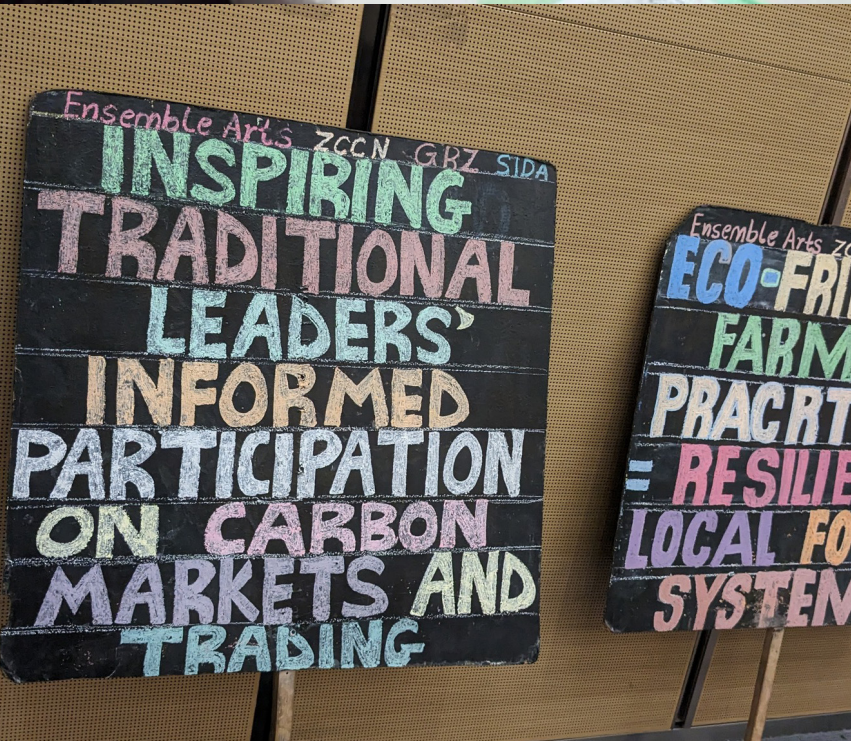 Ensemble Arts ZCCN GRZ SIDA
INSPIRING
TRADITIONAL
LEADERS'
INFORMED
PARTICIPATION
ON CARBON
MARKETS AND
TRADING
Ensemble Arts ZC
ECO-FRI
FARM
PRACRT
= RESILIE
LOCAL FO
SYSTEM